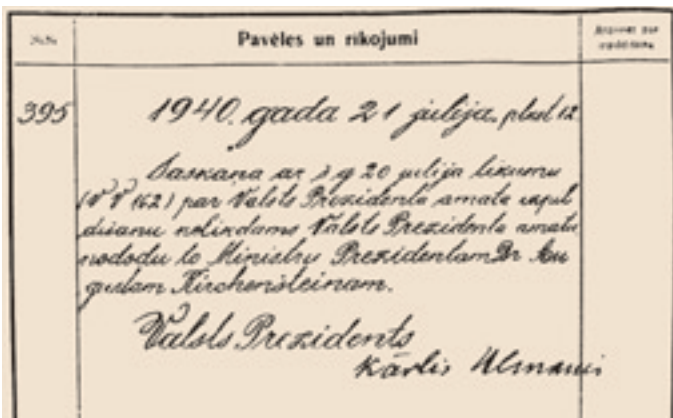 №№
Pavēles un rīkojumi
395
1940. gada 21 jūlija. plkst 12
Saskaņā ar š g 20 jūlija likumu
(V V 162) par Valsts Prezidenta amata izpil
dīšanu nolikdams Valsts Prezidenta amatu
nododu to Ministru Prezidentam Dr Au
gustam Kirchenšteinam.
Valsts Prezidents
Kārlis Ulmanis